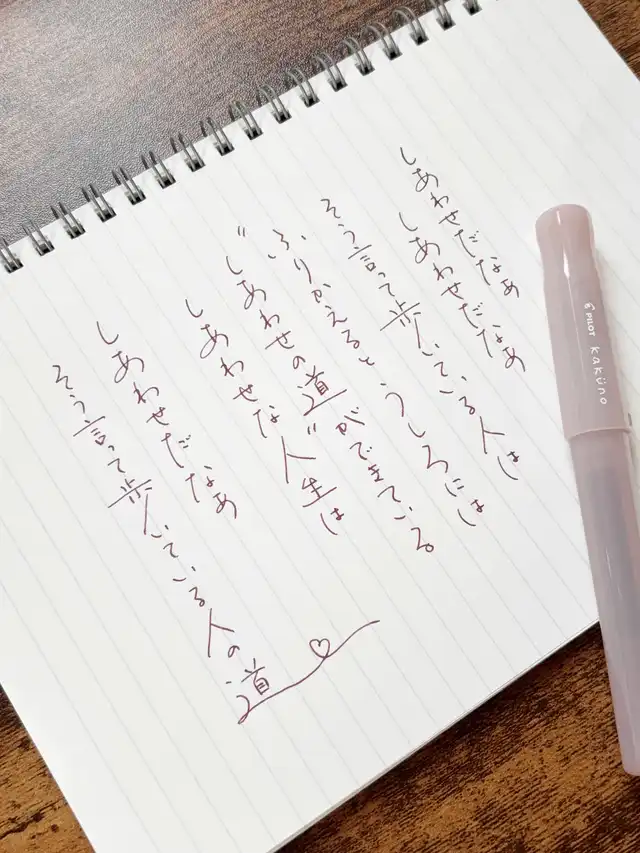 しあわせだなあ
しあわせだなあ
そう言って歩いている人は
ふりかえると うしろには
"しあわせの道"ができている
しあわせな人生は
しあわせだなあ
そう言って歩いている人の道
PILOT kaküno